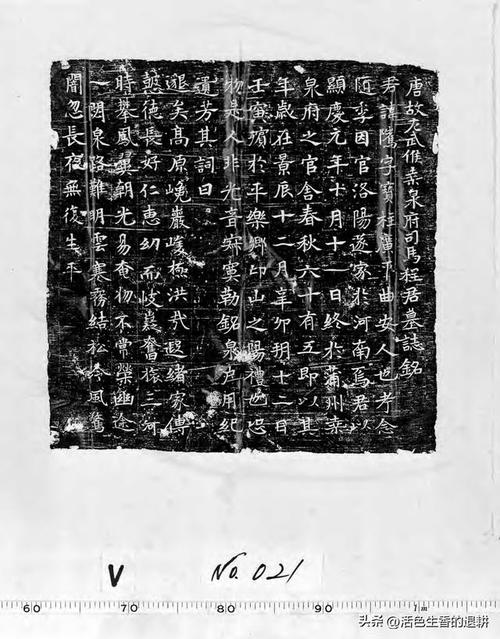 唐故左武候桑泉府司馬程君墓誌銘
君諱隲字寶柱廣平曲安人也考念
隨季因官洛陽遂家於河南焉君以
顯慶元年十月十一日終於蒲州桑
泉府之官舍春秋六十有五即以其
年歲在景辰十二月辛卯朔十二日
壬寅殯於平樂鄉邙山之陽禮也恐
物是人非光音寂寞勒銘泉戶用紀
遺芳其詞曰
邈矣高原巍巖峻極洪 遐緒家傳
懿德長好仁惠幼而岐嶷奮旅三河
時攀鳳翼朝光易 物不常榮幽途
一閉泉路難明雲寒霧結松吟風驚
闇忽長夜無復生平
V
No. 021
60 70 80 90 1m
头条 @活色生香的退耕